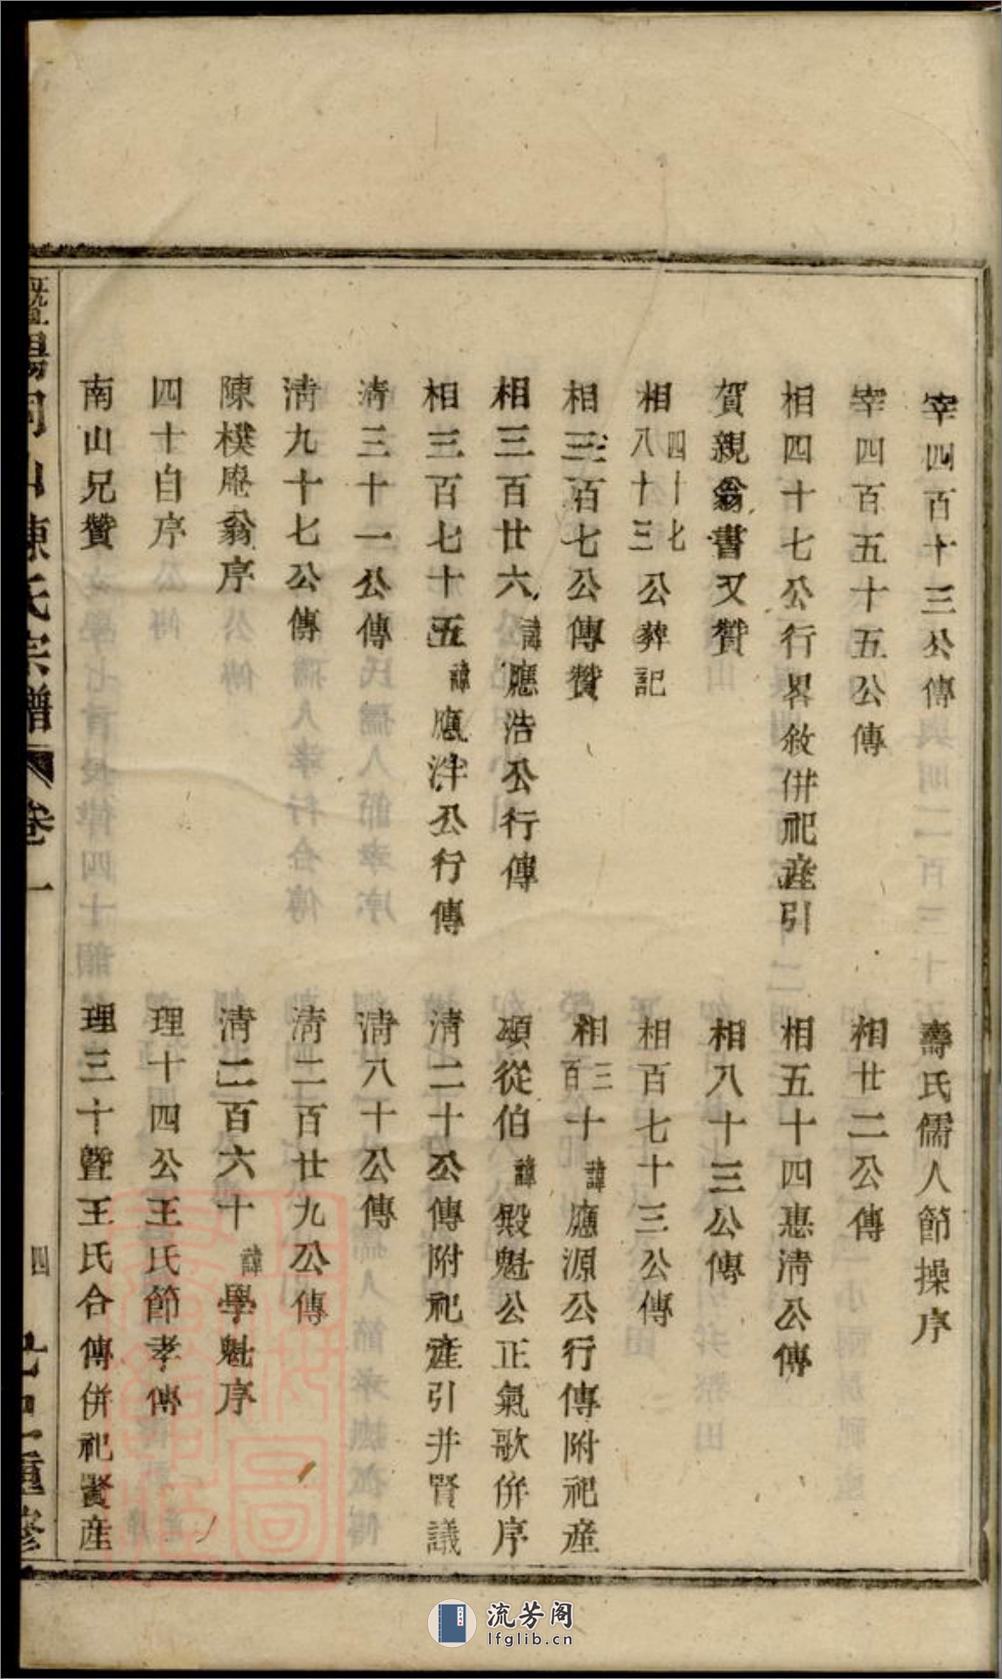 宰四百十三公傳
壽氏儒人節操序
宰四百五十五公傳
相廿二公傳
相四十七公行畧敘併祀產引
相五十四惠清公傳
賀親翁書又贊
相八十三公傳
相四十七八十三公葬記
相百七十三公傳
相三百七公傳贊
相三百十諱應源公行傳附祀產
相三百廿六諱應浩公行傳
頌從伯諱殿魁公正氣歌併序
相三百七十五諱應泮公行傳
清二十公傳附祀產引并賢議
清三十一公傳
清八十公傳
清九十七公傳
清二百廿九公傳
陳樸庵翁序
清二百六十諱學魁序
四十自序
理十四公王氏節孝傳
南山兄贊
理三十暨王氏合傳併祀賢產
暨陽同山陳氏宗譜 卷一
四
重修
流芳阁
lfglib.cn